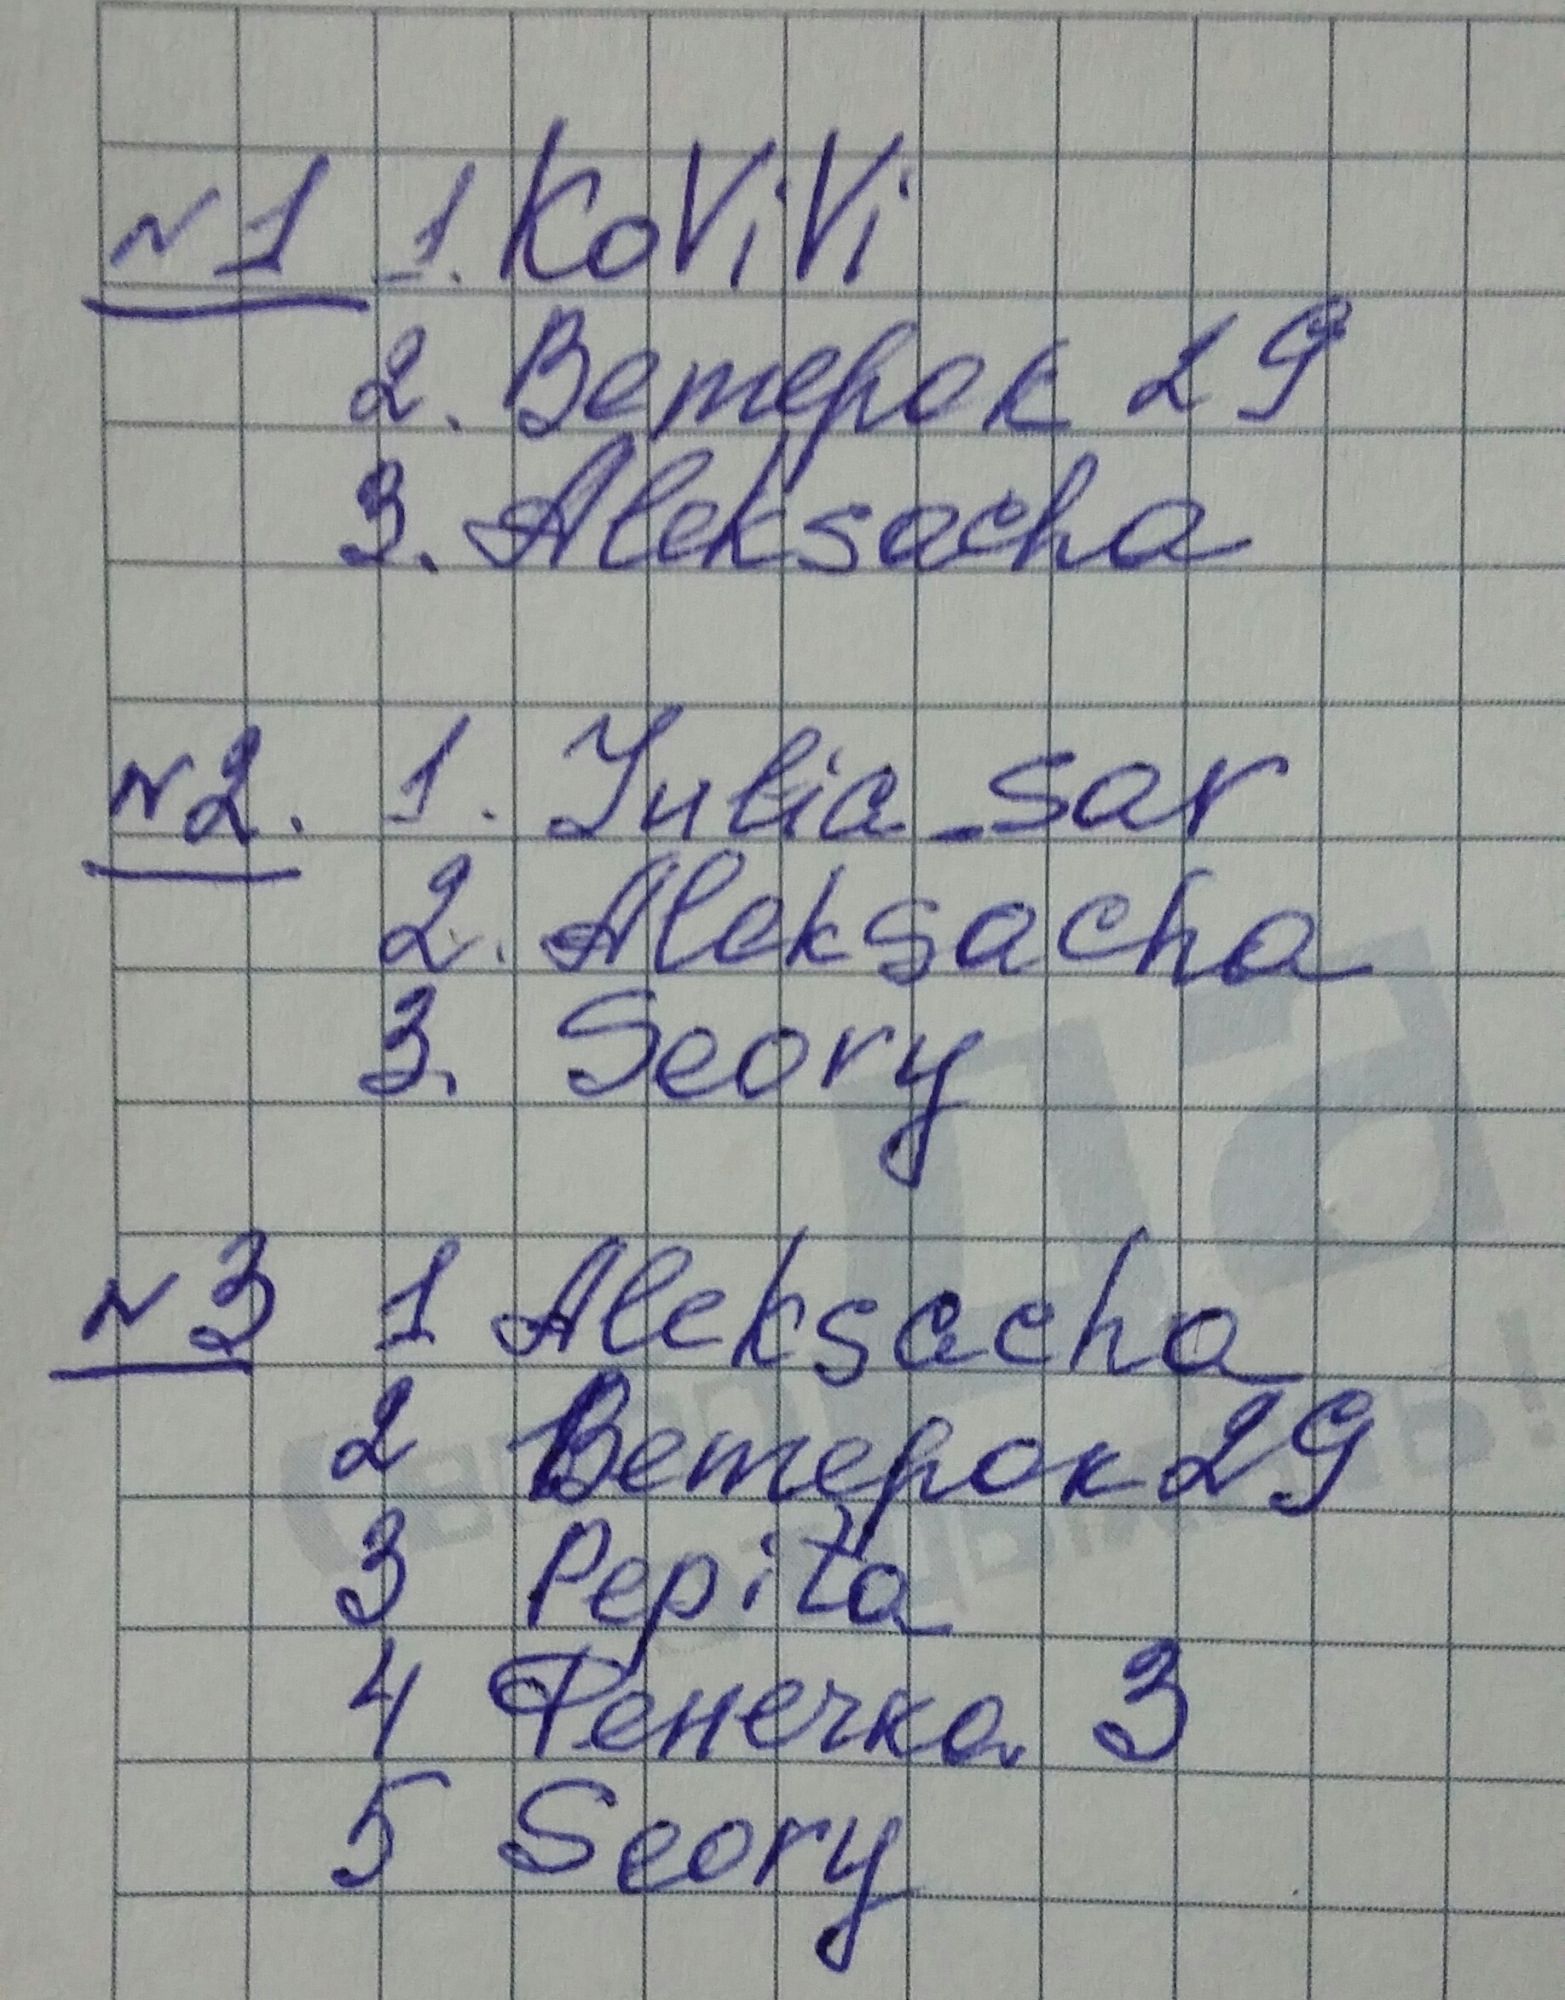 N1 1. KoViVi
2. Ветерок 29
3. Aleksacha
N2. 1. Julia_sar
2. Aleksacha
3. Seory
N3 1 Aleksacha
2 Ветерок 29
3 Pepita
4 Фенечка 3
5 Seory